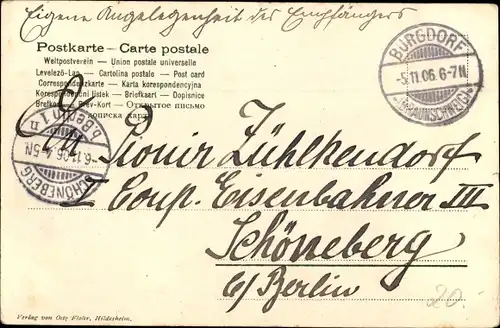 Eigene Angelegenheit des Empfängers
Postkarte – Carte postale
Weltpostverein – Union postale universelle
Levelező-Lap – Cartolina postale – Post card
Correspondenzkarte – Karta korespondencyjna
Korespondenční lístek – Briefkaart – Dopisnice
Brefkort – Brev-Kort – Открытое письмо
дописна карта
BURGDORF
-5.11.06.6-7N.
(BRAUNSCHWEIG)
SCHÖNEBERG
6.11.06.4-5N.
b. Berlin 1
An
Pionir Zühlkendorf
Comp. Eisenbahner III
Schöneberg
b/Berlin
20.-
Verlag von Hildesheim.